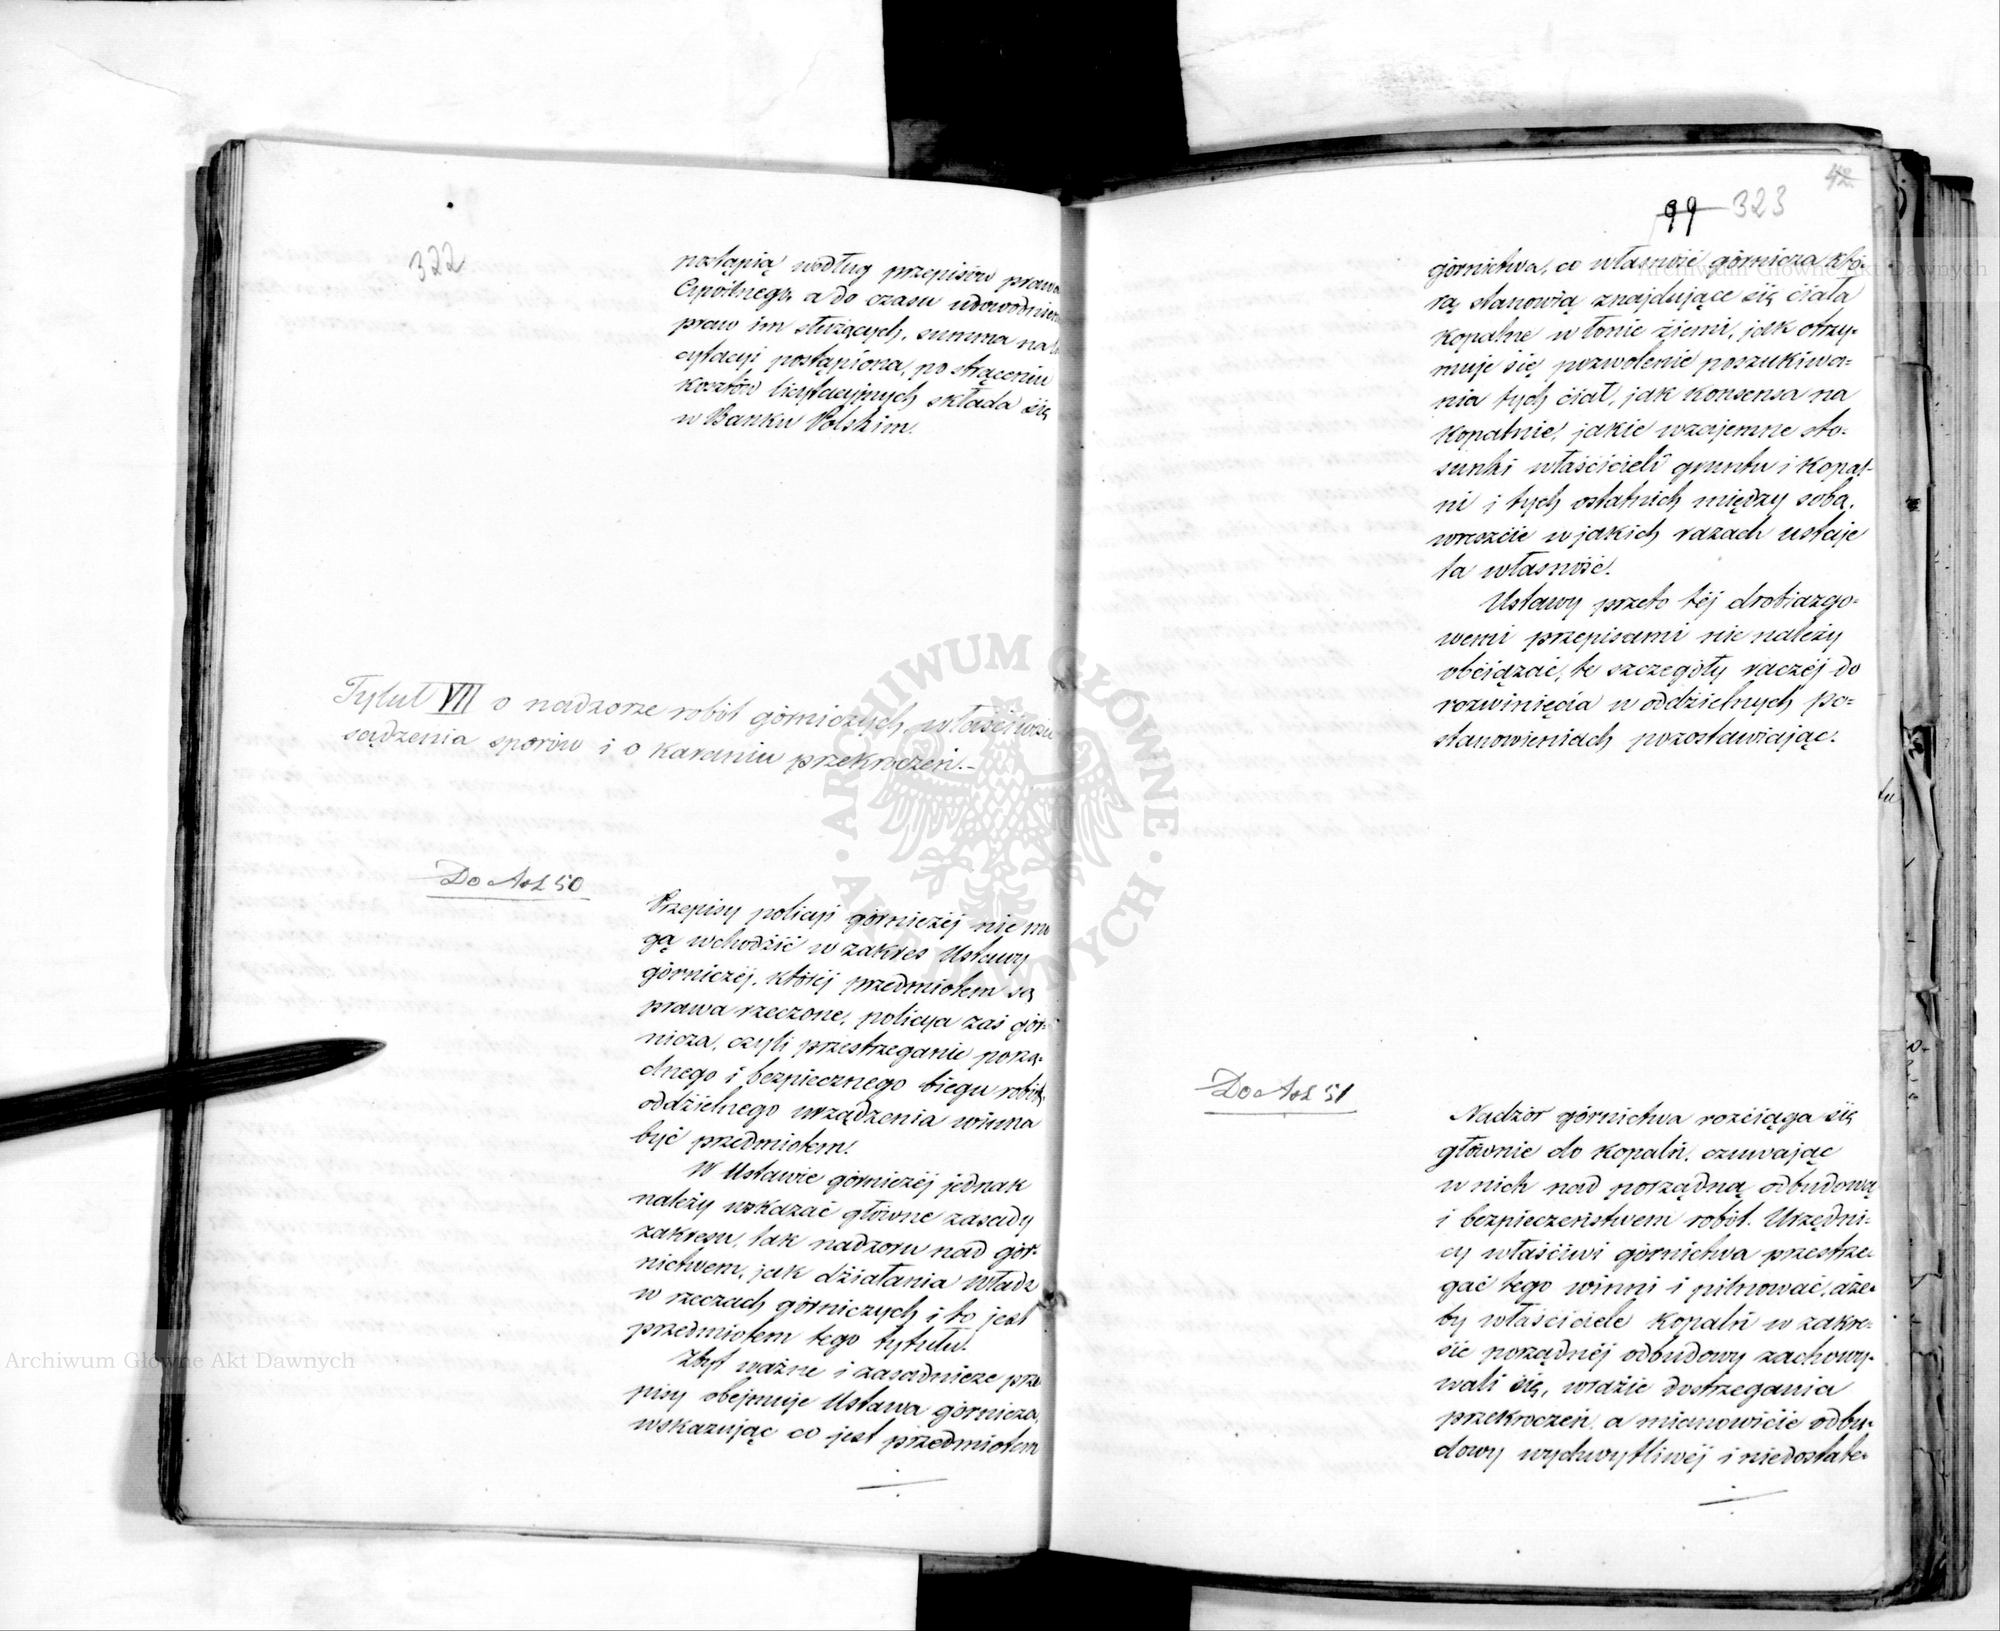 322
postąpią według przepisów prawa
Cywilnego, a do czasu udowodnien
praw im służących, summa na li
cytacyi postąpiona, po strąceniu
kosztów licytacyjnych składa się
w Banku Polskim.
Tytuł VII o nadzorze robót górniczych, właściwości
sądzenia sporów i o karaniu przekroczeń.-
Do Art 50
Przepisy policyi górniczéj nie mo
gą wchodzić w zakres Ustawy
górniczéj, któréj przedmiotem są
prawa rzeczone, policya zaś gór-
nicza, czyli przestrzeganie porzą-
dnego i bezpiecznego biegu robót,
oddzielnego urządzenia winna
być przedmiotem.
W Ustawie górniczéj jednak
należy wskazać główne zasady
zakresu, tak nadzoru nad gór-
nictwem, jak działania władz
w rzeczach górniczych i to jest
przedmiotem tego tytułu.
Zbyt ważne i zasadnicze prze
pisy obejmuje Ustawa górnicza,
wskazując co jest przedmiotem
42
99 323
górnictwa, co własność górnicza któ-
rą stanowią znajdujące się ciała
kopalne w łonie ziemi, jak otrzy-
muje się pozwolenie poszukiwa-
nia tych ciał, jak konsensa na
kopalnie, jakie wzajemne sto-
sunki właścicieli gruntu i kopal-
ni i tych ostatnich między sobą,
wreszcie w jakich razach ustaje
ta własność.
Ustawy przeto téj drobiazgo-
wemi przepisami nie należy
obciązać, te szczegóły raczéj do
rozwinięcia w oddzielnych po-
stanowieniach pozostawiając.
Do Art 51
Nadzór górnictwa rozciąga się
głównie do kopalń, czuwając
w nich nad porządną odbudową
i bezpieczeństwem robót. Urzędni-
cy właściwi górnictwa przestrze-
gać tego winni i pilnować, aże-
by właściciele kopalń w zakre-
sie porządnéj odbudowy zachowy-
wali się, wrazie dostrzegania
przekroczeń, a mianowicie odbu-
dowy wychwytliwéj i niedostate-
ARCHIWUM GŁÓWNE AKT DAWNYCH
Archiwum Główne Akt Dawnych
Archiwum Główne Akt Dawnych